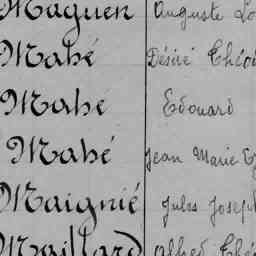 Maguen Auguste
Mahé Désiré
Mahé Edouard
Mahé Jean Marie
Maignié Jules Joseph
Maillard Alfred